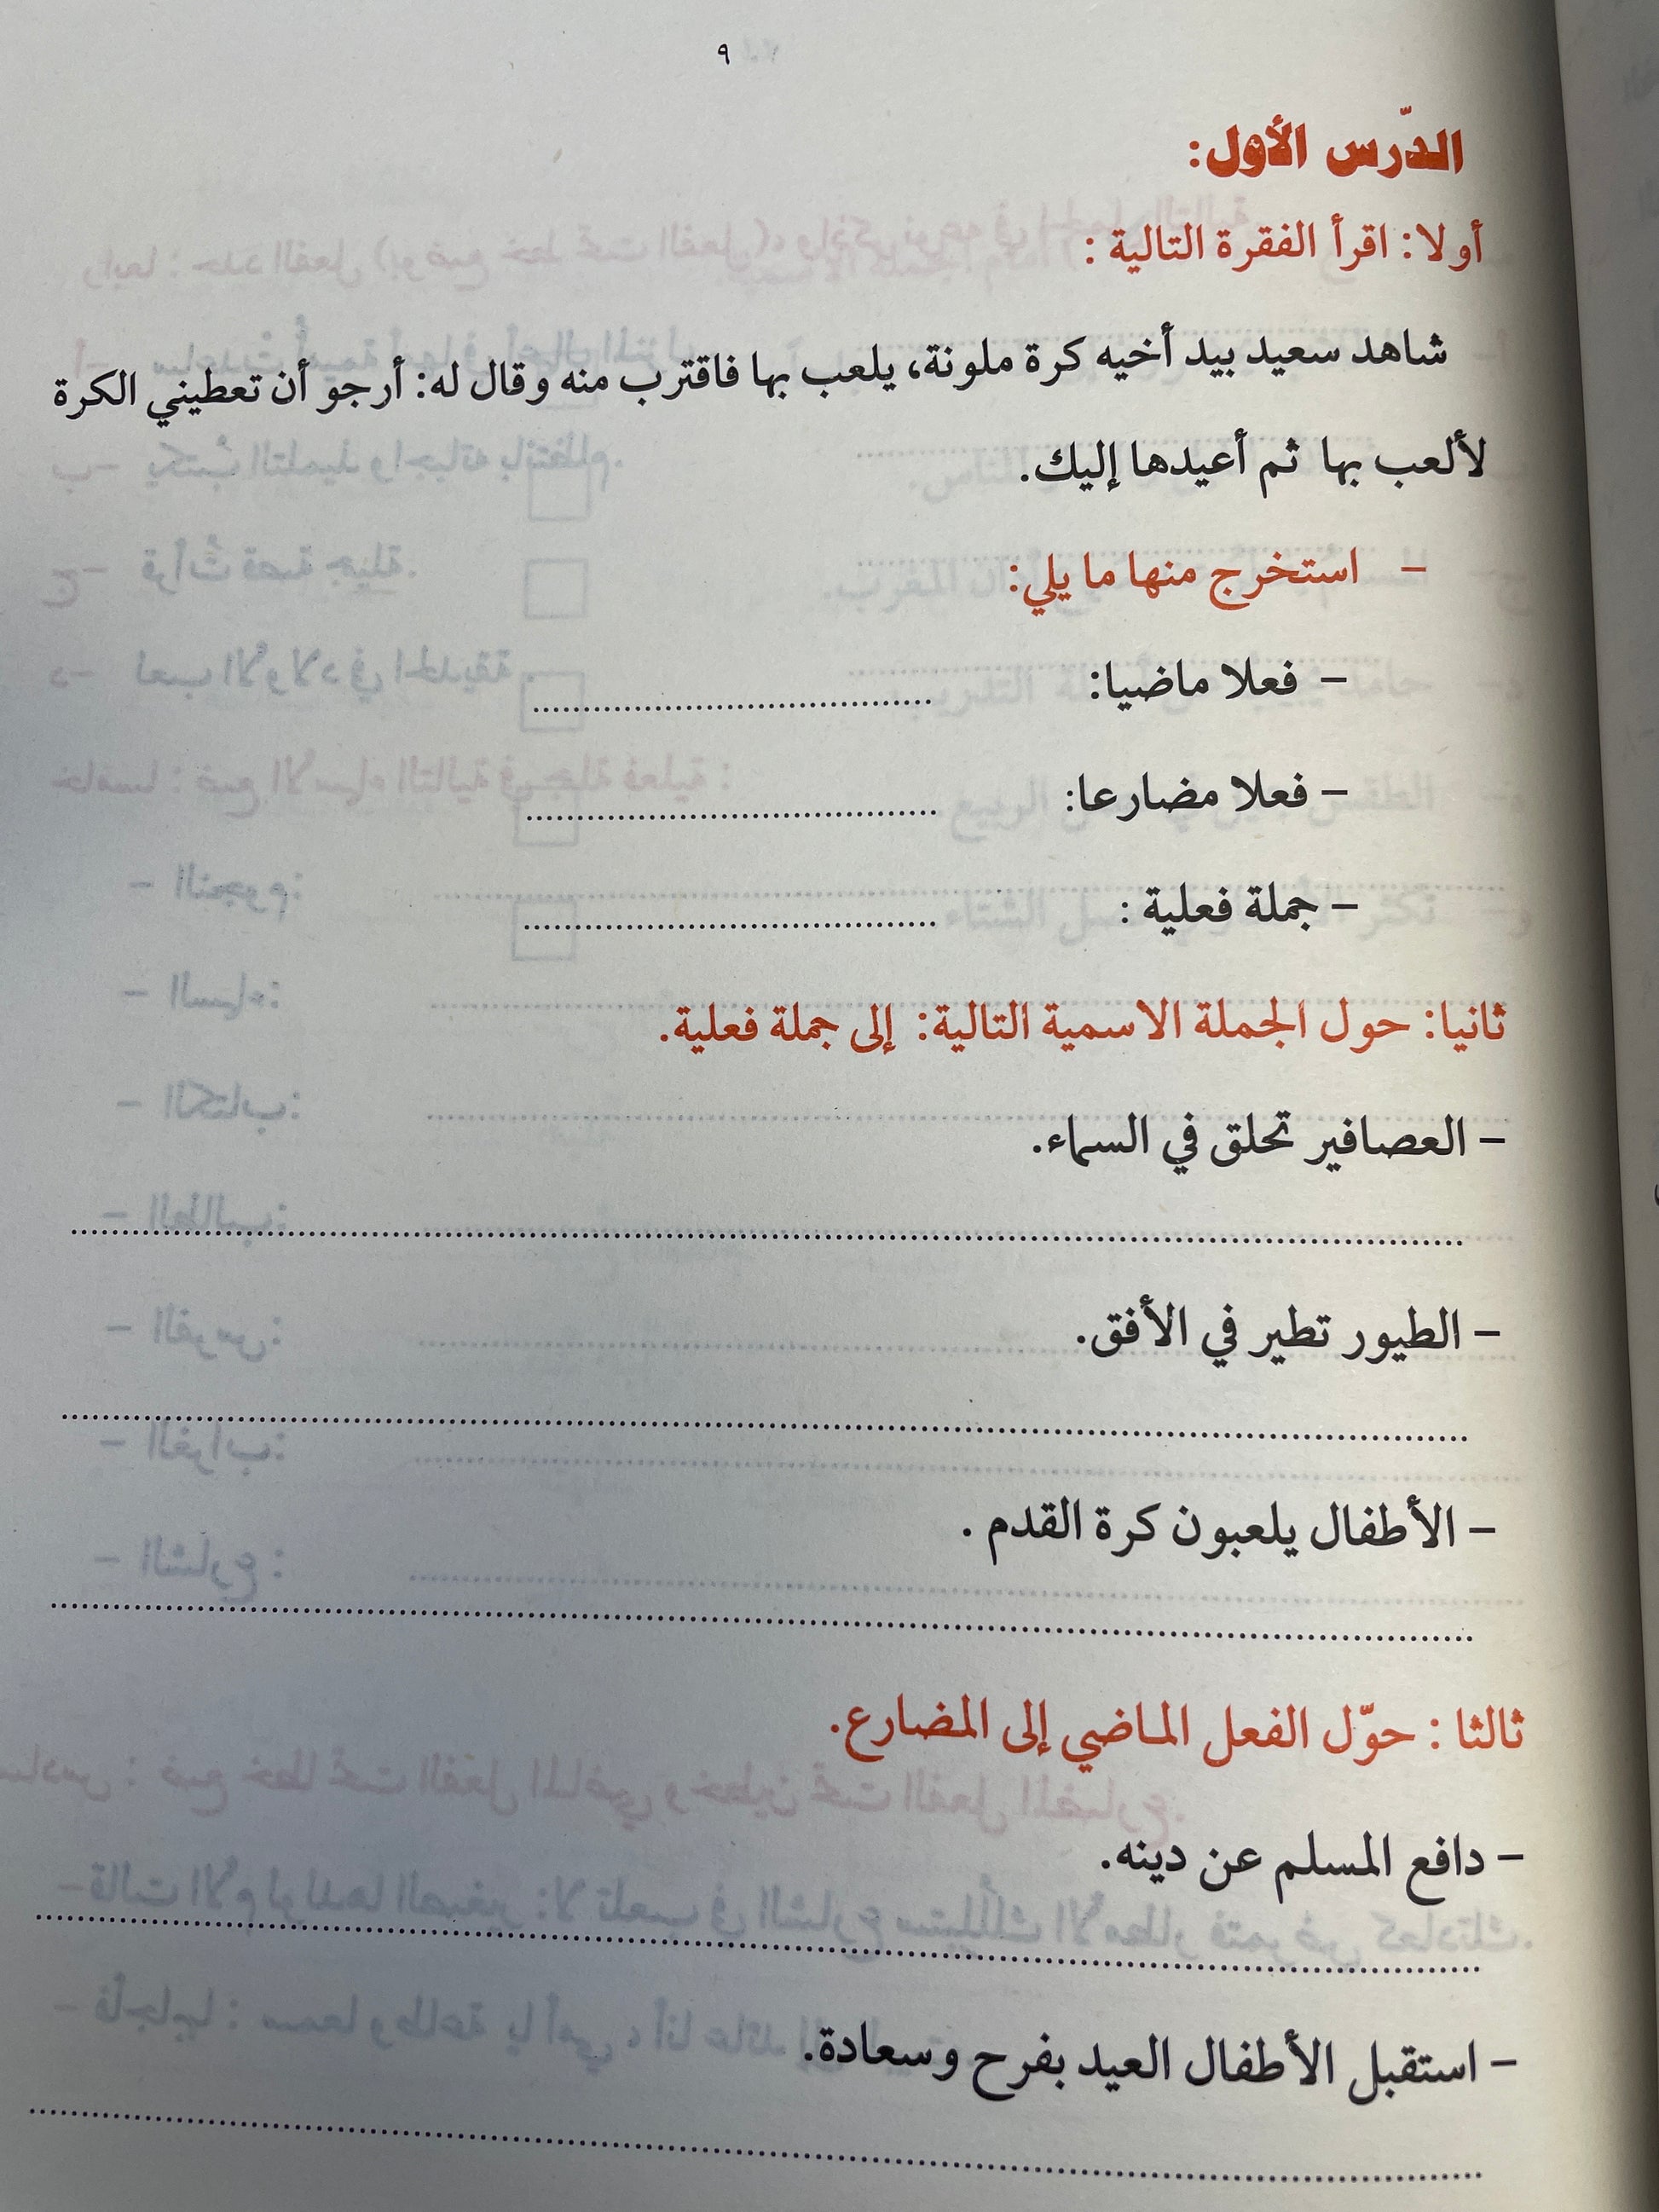 ٩
الدّرس الأول:
أولا: اقرأ الفقرة التالية :
شاهد سعيد بيد أخيه كرة ملونة، يلعب بها فاقترب منه وقال له: أرجو أن تعطيني الكرة
لألعب بها ثم أعيدها إليك.
– استخرج منها ما يلي:
– فعلا ماضيا: ........................................
– فعلا مضارعا: ........................................
– جملة فعلية : ........................................
ثانيا: حول الجملة الاسمية التالية: إلى جملة فعلية.
– العصافير تحلق في السماء.
– الطيور تطير في الأفق.
– الأطفال يلعبون كرة القدم .
ثالثا : حوّل الفعل الماضي إلى المضارع.
– دافع المسلم عن دينه.
– استقبل الأطفال العيد بفرح وسعادة.